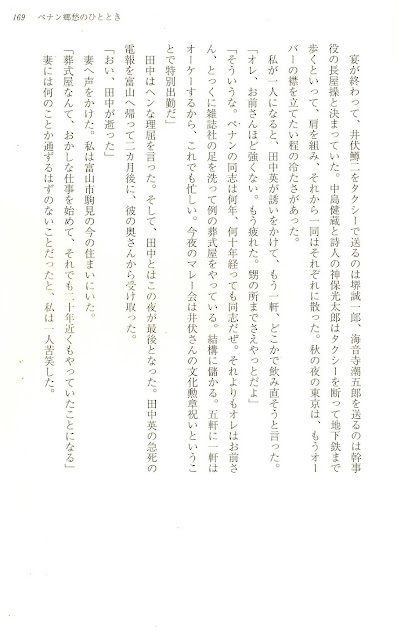 169 ペナン郷愁のひととき
宴が終わって、井伏鱒二をタクシーで送るのは堺誠一郎、海音寺潮五郎を送るのは幹事
役の長屋操と決まっていた。中島健蔵と詩人の神保光太郎はタクシーを断って地下鉄まで
歩くといって、肩を組み、それから一同はそれぞれに散った。秋の夜の東京は、もうオー
バーの襟を立てたい程の冷たさがあった。
私が一人になると、田中英が誘いをかけて、もう一軒、どこかで飲み直そうと言った。
「オレ、お前さんほど強くない。もう疲れた。甥の所までさえやっとだよ」
「そういうな。ペナンの同志は何年、何十年経っても同志だぜ。それよりもオレはお前さ
ん、とっくに雑誌社の足を洗って例の葬式屋をやっている。結構に儲かる。五軒に一軒は
オーケーするから、これでも忙しい。今夜のマレー会は井伏さんの文化勲章祝いというこ
とで特別出勤だ」
田中はヘンな理屈を言った。そして、田中とはこの夜が最後となった。田中英の急死の
電報を富山へ帰って二カ月後に、彼の奥さんから受け取った。
「おい、田中が逝った」
妻へ声をかけた。私は富山市駒見の今の住まいにいた。
「葬式屋なんて、おかしな仕事を始めて、それでも二十年近くもやっていたことになる」
妻には何のことか通ずるはずのないことだったと、私は一人苦笑した。